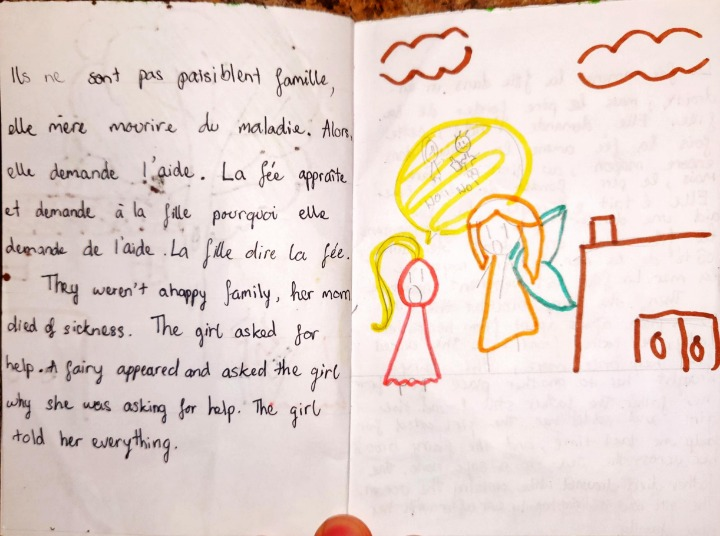 Ils ne sont pas paisiblent famille,
elle mère mourire du maladie. Alors,
elle demande l'aide. La fée appraîte
et demande à la fille pourquoi elle
demande de l'aide. La fille dire la fée.
They weren't a happy family, her mom
died of sickness. The girl asked for
help. A fairy appeared and asked the girl
why she was asking for help. The girl
told her everything.